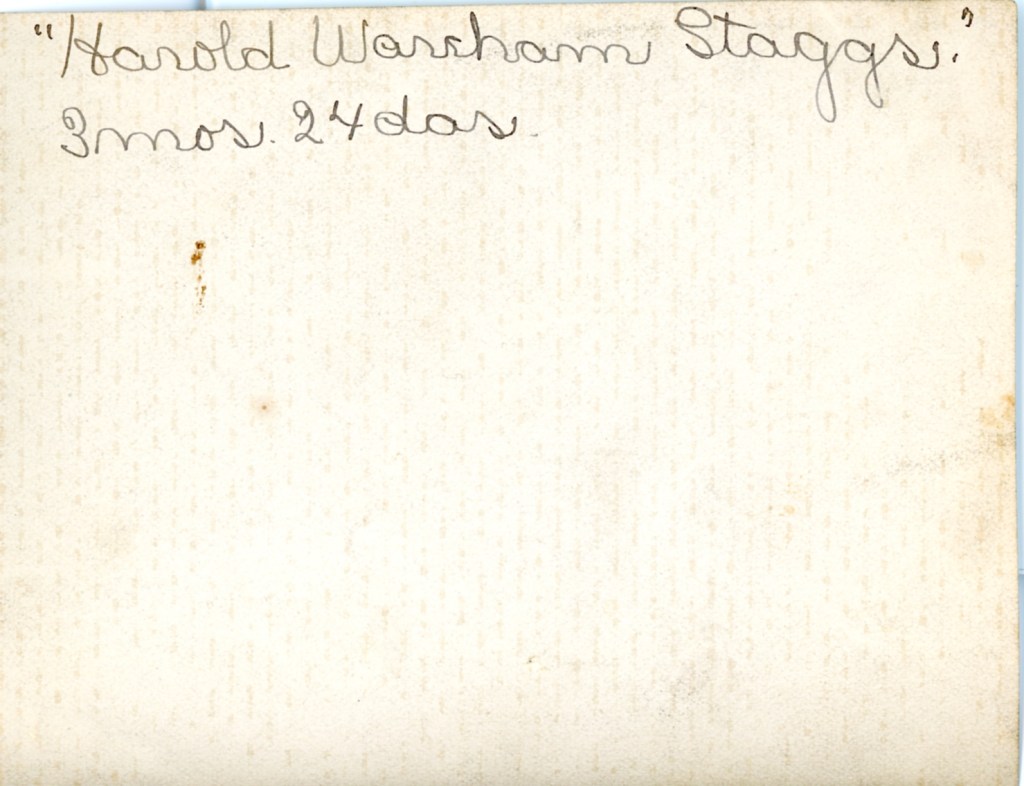 "Harold Warcham Staggs."
3mos. 24das.